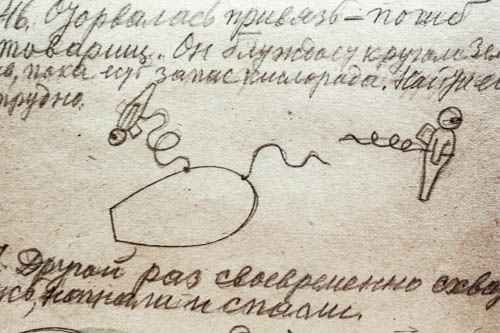 46. Оторвалась привязь = погиб
товарищ. Он блуждает кругом Зем
ли, пока есть запас кислорода. Найти его
трудно.
Другой раз своевременно схва
нагнали и спасли.